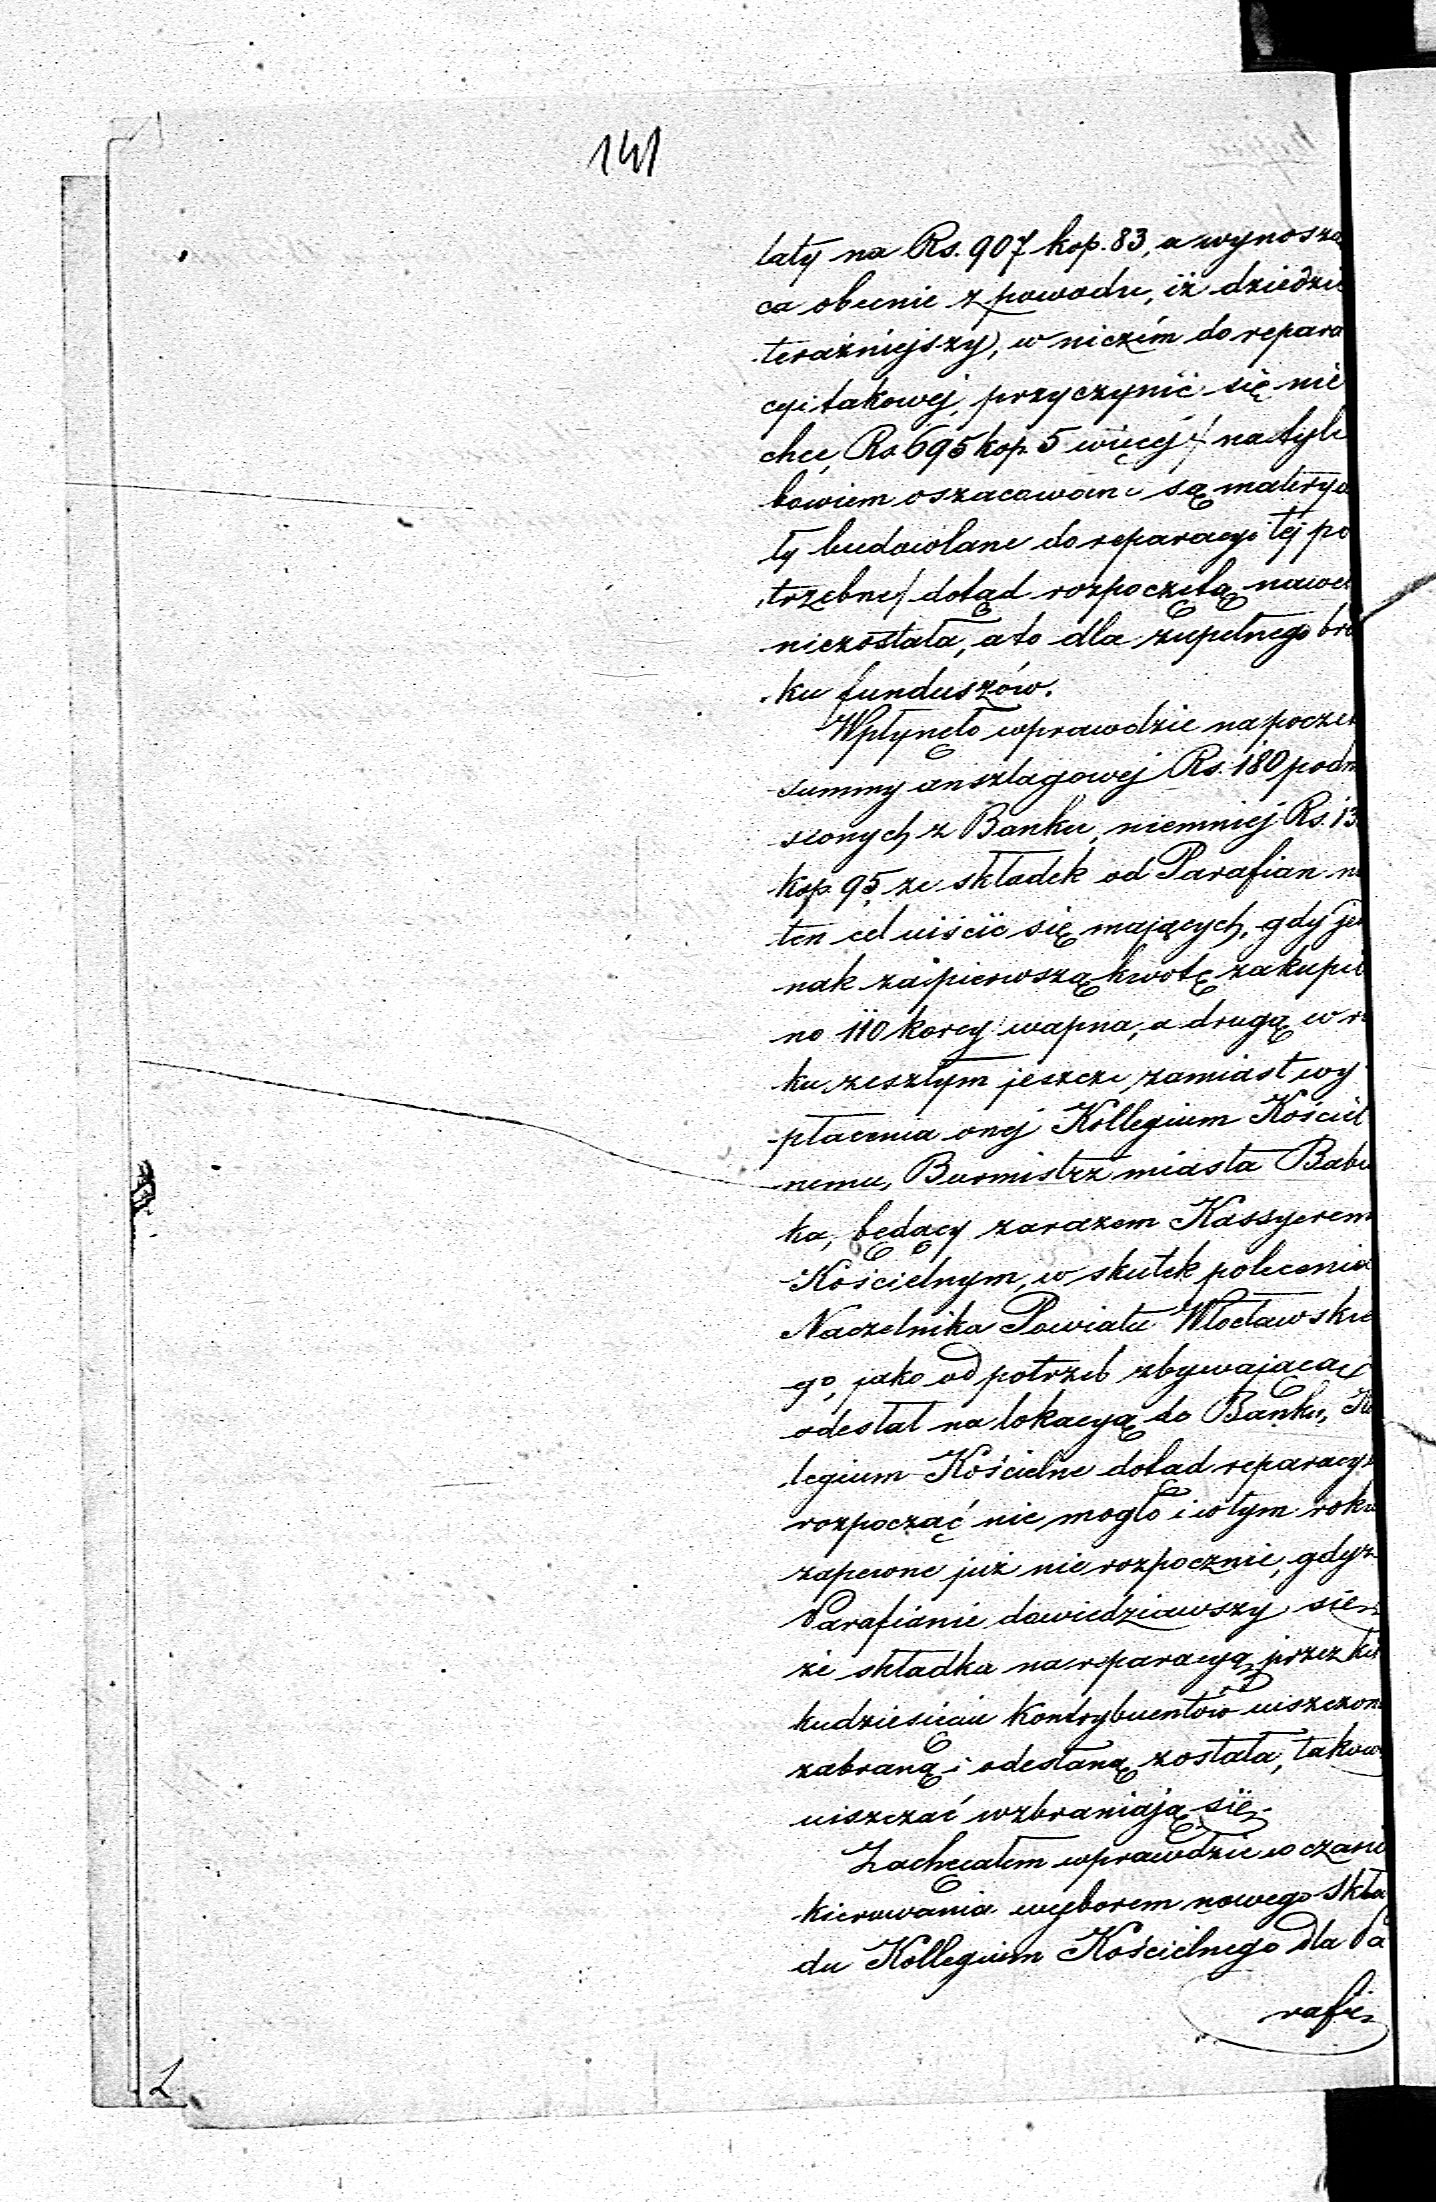 141
taty na Rs. 907 kop. 83, a wynoszą
ca obecnie z powodu, iż dziedzic
teraźniejszy, w niczém do repara
cyi takowéj, przyczynić się nie
chce, Rs. 695 kop. 5 więcéj / na tyle
bowiem oszacowane są materya
ły budowlane do reparacyi téj po
trzebne / dotąd rozpoczętą nawet
niezostała, a to dla zupełnego bra
ku funduszów.
Wpłynęło wprawdzie na poczet
summy anszlagowéj Rs. 180 podn
sionych z Banku, niemniéj Rs. 13
kop. 95 ze składek od Parafian na
ten cel uiścić się mających, gdy jed
nak za pierwszą kwotę zakupio
no 110 korcy wapna, a drugą w ro
ku zeszłym jeszcze zamiast wy
płacenia onéj Kollegium Kościel
nemu, Burmistrz miasta Babia
ka, będący zarazem Kassyerem
Kościelnym, w skutek polecenia
Naczelnika Powiatu Włocławskie
go, jako od potrzeb zbywającą
odesłał na lokacyą do Banku, Ko
legium Kościelne dotąd reparacyi
rozpocząć nie mogło i w tym roku
zapewne już nie rozpocznie, gdyż
Parafianie dowiedziawszy się
że składka na reparacyą przez kil
kudziesięciu kontrybuentów uiszczon
zabraną i odesłaną została, takow
uiszczać wzbraniają się.
Zachęcałem wprawdzie w czasie
kierowania wyborem nowego Skła
du Kollegium Kościelnego dla Pa
rafii
2